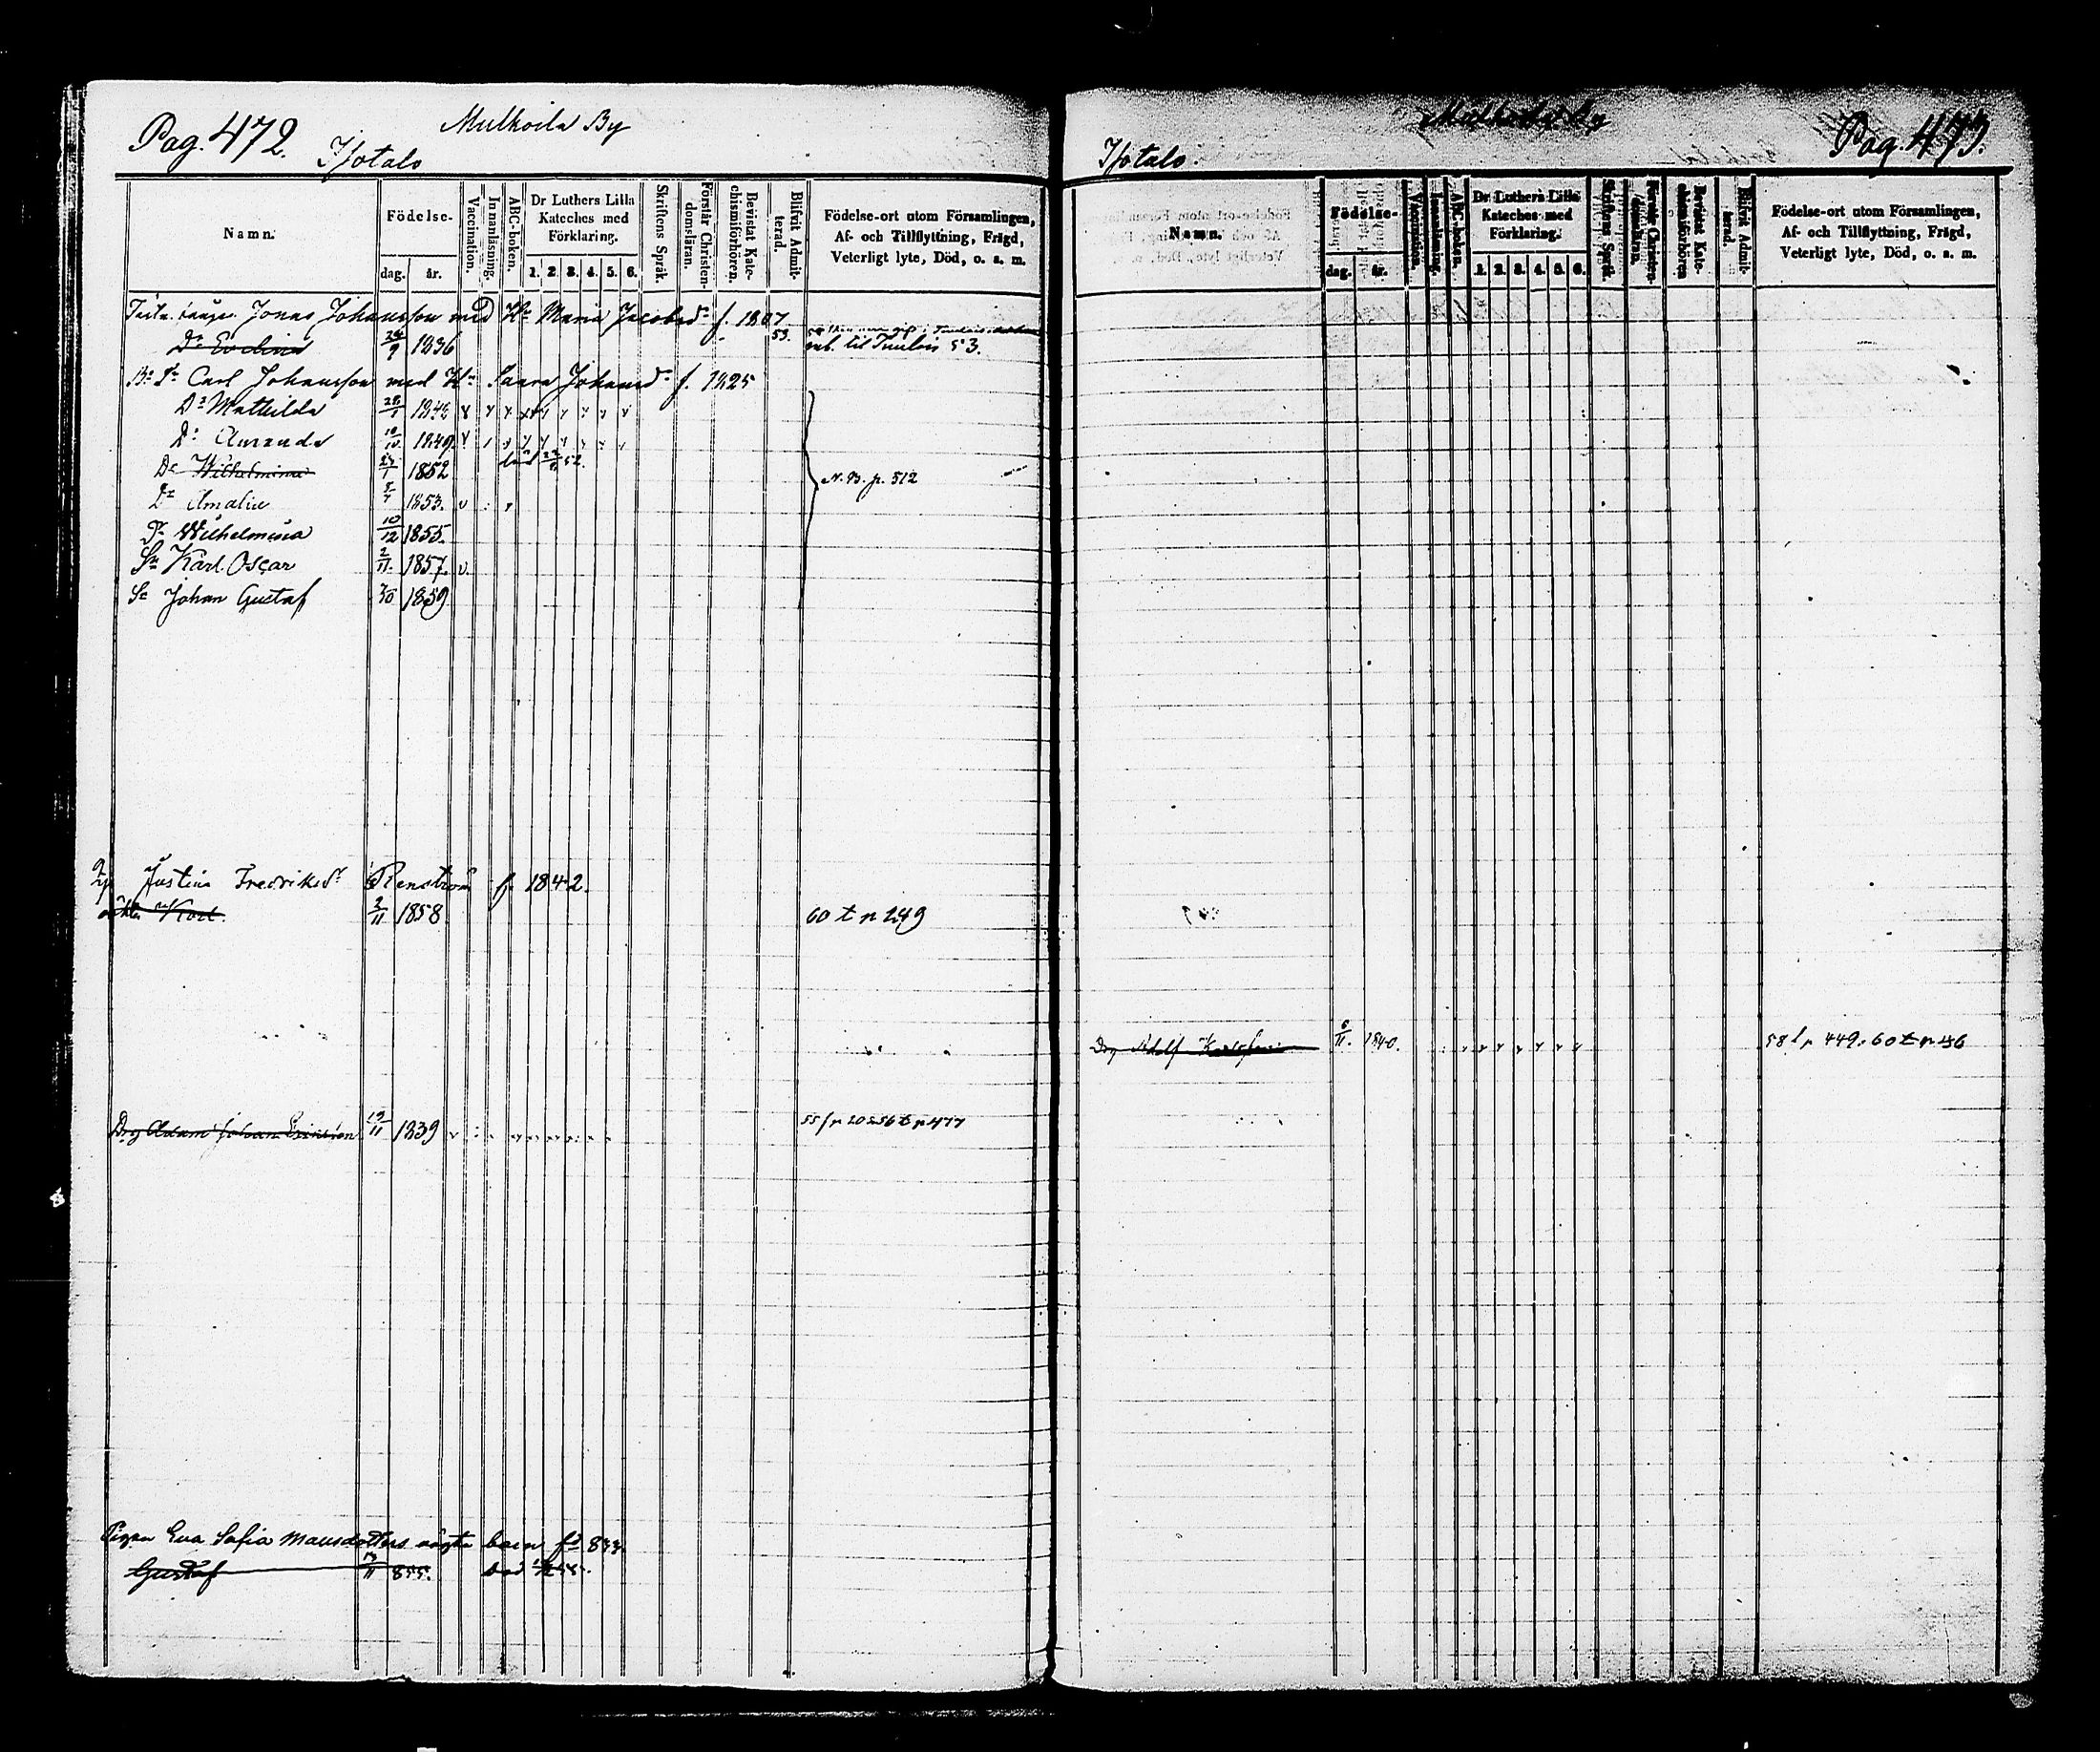 Pag. 472.
Mulkoila By
Isotalo
Namn.
Födelse-
dag. år.
Vaccination.
Innanläsning.
ABC-boken.
Dr Luthers Lilla Kateches med Förklaring.
1. 2. 3. 4. 5. 6.
Skriftens Språk.
Förstår Christen-domsläran.
Bevistat Kate-chismiförhören.
Blifvit Admit-terad.
Födelse-ort utom Församlingen,
Af- och Tillflyttning, Frägd,
Veterligt lyte, Död, o. s. m.
Jonas Johansson med Hu Maria Jacobsdr f. 1807
Dr Evelina 1836 53. til Tuulois 53.
Carl Johansson med Hu Saara Johansdr f. 1825
Dr Mathilda 28/1 1846
Dr Amanda 10/10 1849
Dr Wilhelmina 1852 död 52.
Dr Amalia 1853.
N. B. p. 512
Dr Wilhelmina 10/12 1855.
Sn Karl Oscar 2/11 1857. v.
Sn Johan Gustaf 1859
Justina Fredriksdr Renström f. 1842.
Karl. 2/11 1858 60 t p 249
Drg Adam Johan Ericsson 19/11 1839
Pigan Eva Sofia Mausdotters oägta barn fd 833.
Gustaf 13/11 855. död
Mulkoila By
Pag. 473.
Isotalo.
Namn.
Födelse-
dag. år.
Vaccination.
Innanläsning.
ABC-boken.
Dr Luthers Lilla Kateches med Förklaring.
1. 2. 3. 4. 5. 6.
Skriftens Språk.
Förstår Christen-domsläran.
Bevistat Kate-chismiförhören
Blifvit Admit-terad.
Födelse-ort utom Församlingen,
Af- och Tillflyttning, Frägd,
Veterligt lyte, Död, o. s. m.
Drg Adolf Karlsson 6/11. 1840. 58 f p 449. 60 t p 46